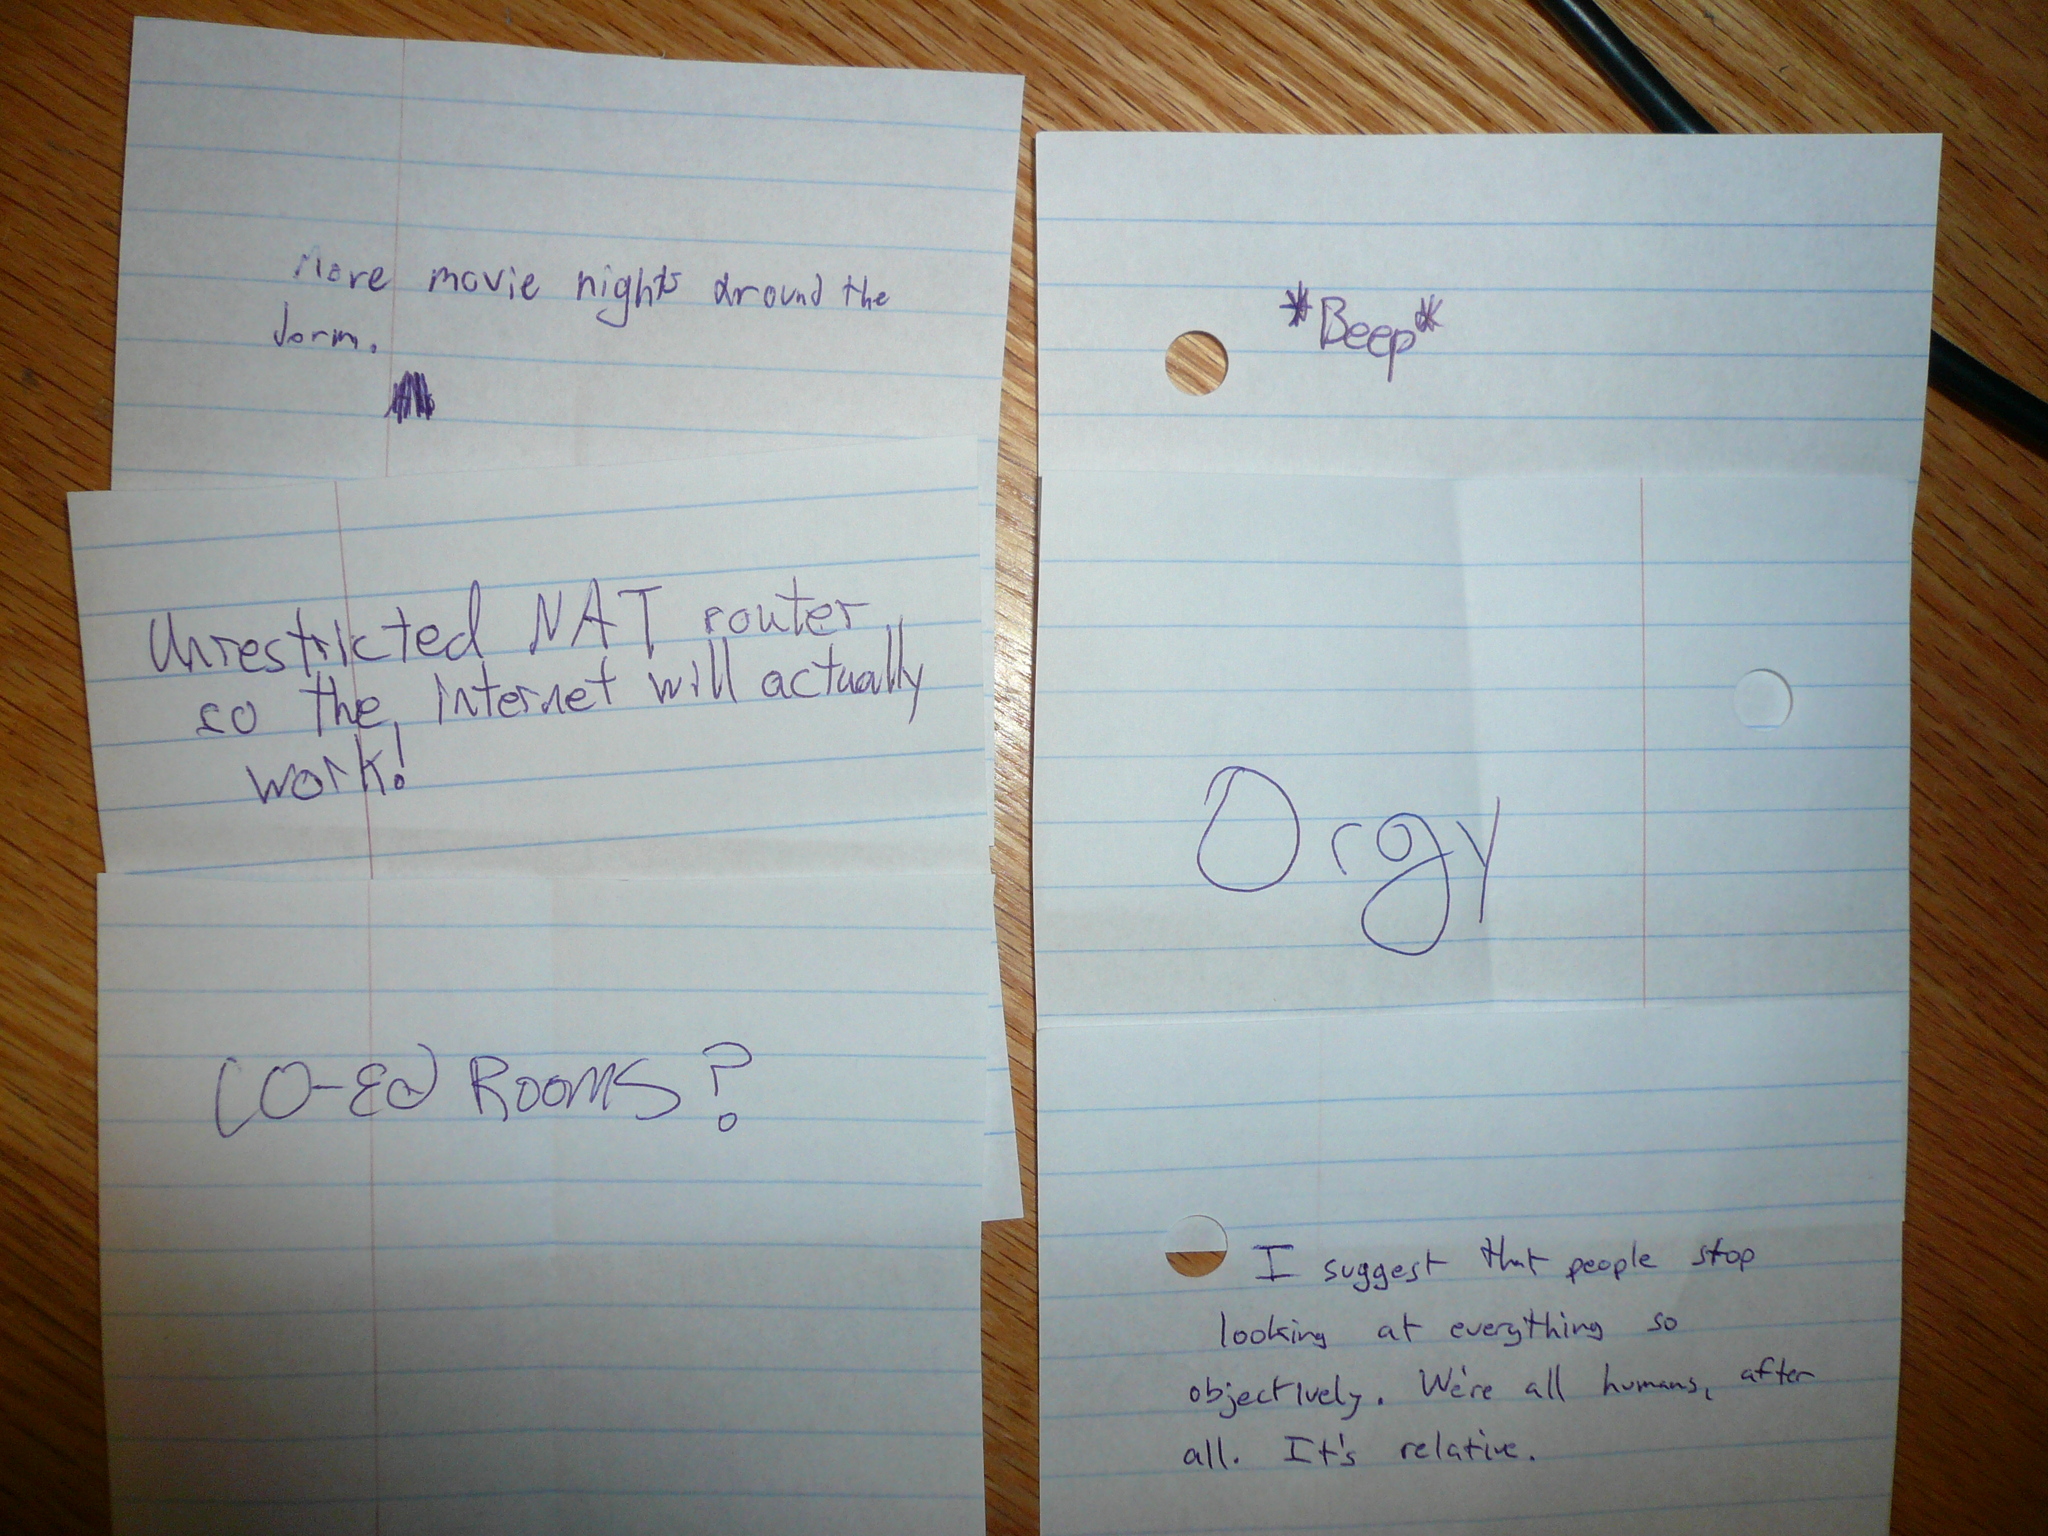 More movie nights around the
dorm.
Unrestricted NAT router
so the internet will actually
work!
CO-Ed ROOMS?
*Beep*
Orgy
I suggest that people stop
looking at everything so
objectively. We're all humans, after
all. It's relative.